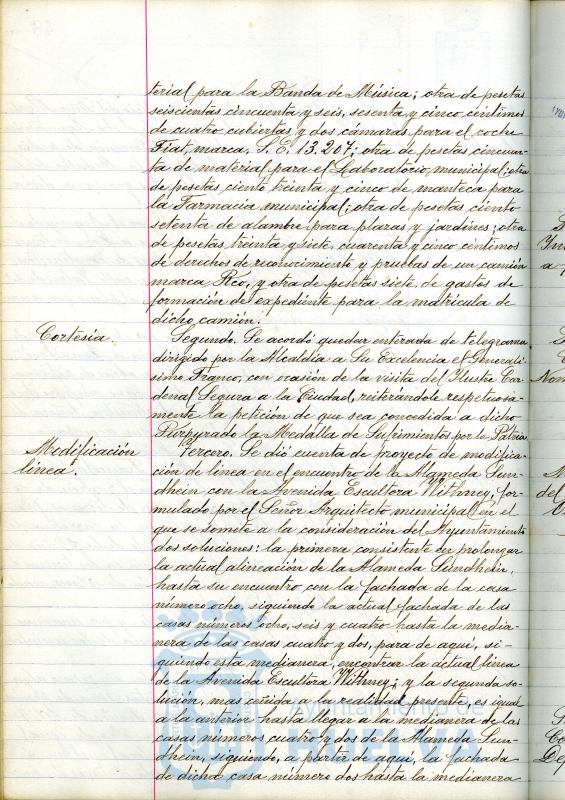 terial para la Banda de Música; otra de pesetas
seiscientas cincuenta y seis, sesenta y cinco céntimos
de cuatro cubiertas y dos cámaras para el coche
Fiat, marca, S.E. 13.207; otra de pesetas cincuen-
ta de material para el Laboratorio municipal; otra
de pesetas ciento treinta y cinco de manteca para
la Farmacia municipal; otra de pesetas ciento
setenta de alambre para plazas y jardines; otra
de pesetas treinta y siete, cuarenta y cinco céntimos
de derechos de reconocimiento y pruebas de un camión
marca Reo, y otra de pesetas siete de gastos de
formación de expediente para la matrícula de
dicho camión.
Cortesía.
Segundo. Se acordó quedar enterada de telegrama
dirigido por la Alcaldía a Su Excelencia el Generali-
simo Franco, con ocasión de la visita del Ilustre Car-
denal Segura a la Ciudad, reiterándole respetuosa-
mente la petición de que sea concedida a dicho
Purpurado la Medalla de Sufrimientos por la Patria.
Modificación
línea.
Tercero. Se dió cuenta de proyecto de modifica-
ción de linea en el encuentro de la Alameda Sun-
dhein con la Avenida Escultora Withney, for-
mulado por el Señor Arquitecto municipal en el
que se somete a la consideración del Ayuntamiento
dos soluciones: la primera consistente en prolongar
la actual alineación de la Alameda Sundhein,
hasta su encuentro con la fachada de la casa
número ocho, siguiendo la actual fachada de las
casas números ocho, seis y cuatro hasta la media-
nera de las casas cuatro y dos, para de aquí, si-
guiendo esta medianera, encontrar la actual linea
de la Avenida Escultora Withney; y la segunda so-
lución, mas ceñida a la realidad presente, es igual
a la anterior hasta llegar a la medianera de las
casas números cuatro y dos de la Alameda Sun-
dhein, siguiendo, a partir de aquí, la fachada
de dicha casa número dos hasta la medianera
Ayuntamiento de
HUELVA